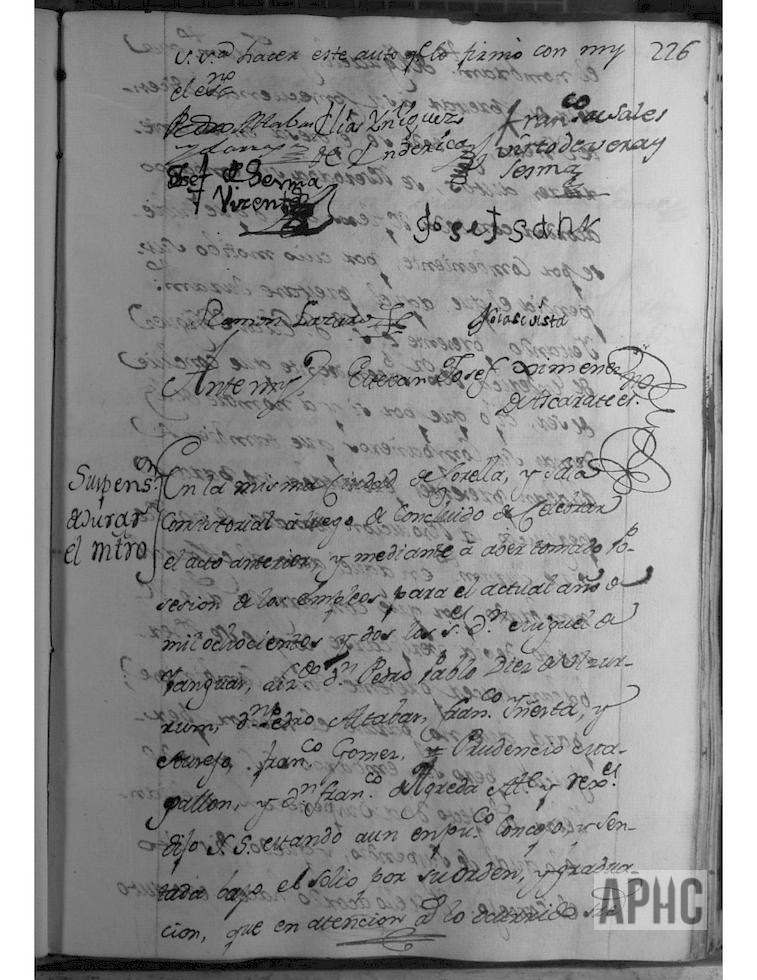 S. Sª. hacer este auto qe. lo firmó con my
el esno.
226
Pedro Altabas Elias Yñiguez Franco. Sales
y de Enderica virto de vera y
Josef de Serma Serma
+ Vizente
Josef Sanz
Ramon Lazaro Josias vista
Antemy Estevan Josef Ximenez
de Ascarate es.no
Suspenson.
de Jurar
el mtro
En la misma Ciudad de Corella, y Sala
Consistorial á luego de Concluido de Celebrar
el acto anterior, y mediante á aber tomado Po-
sesion de los empleos para el actual año de
mil ochocientos y dos los S.es Dn. Miguel de
Dn. Pedro Pablo Diez de Ulzur-
rum, Dn. Pedro Altabas, Franco. Yñesta, y
Franco. Gomez, Prudencio esta-
pallon, y Dn. Franco. de Agreda Ale. y Rexes.
Dijo S. S. estando aun en puco. Concejo, y Sen-
tada bajo el Solio por su orden, y gradua-
cion, que en atencion á lo ocurrido
APHC